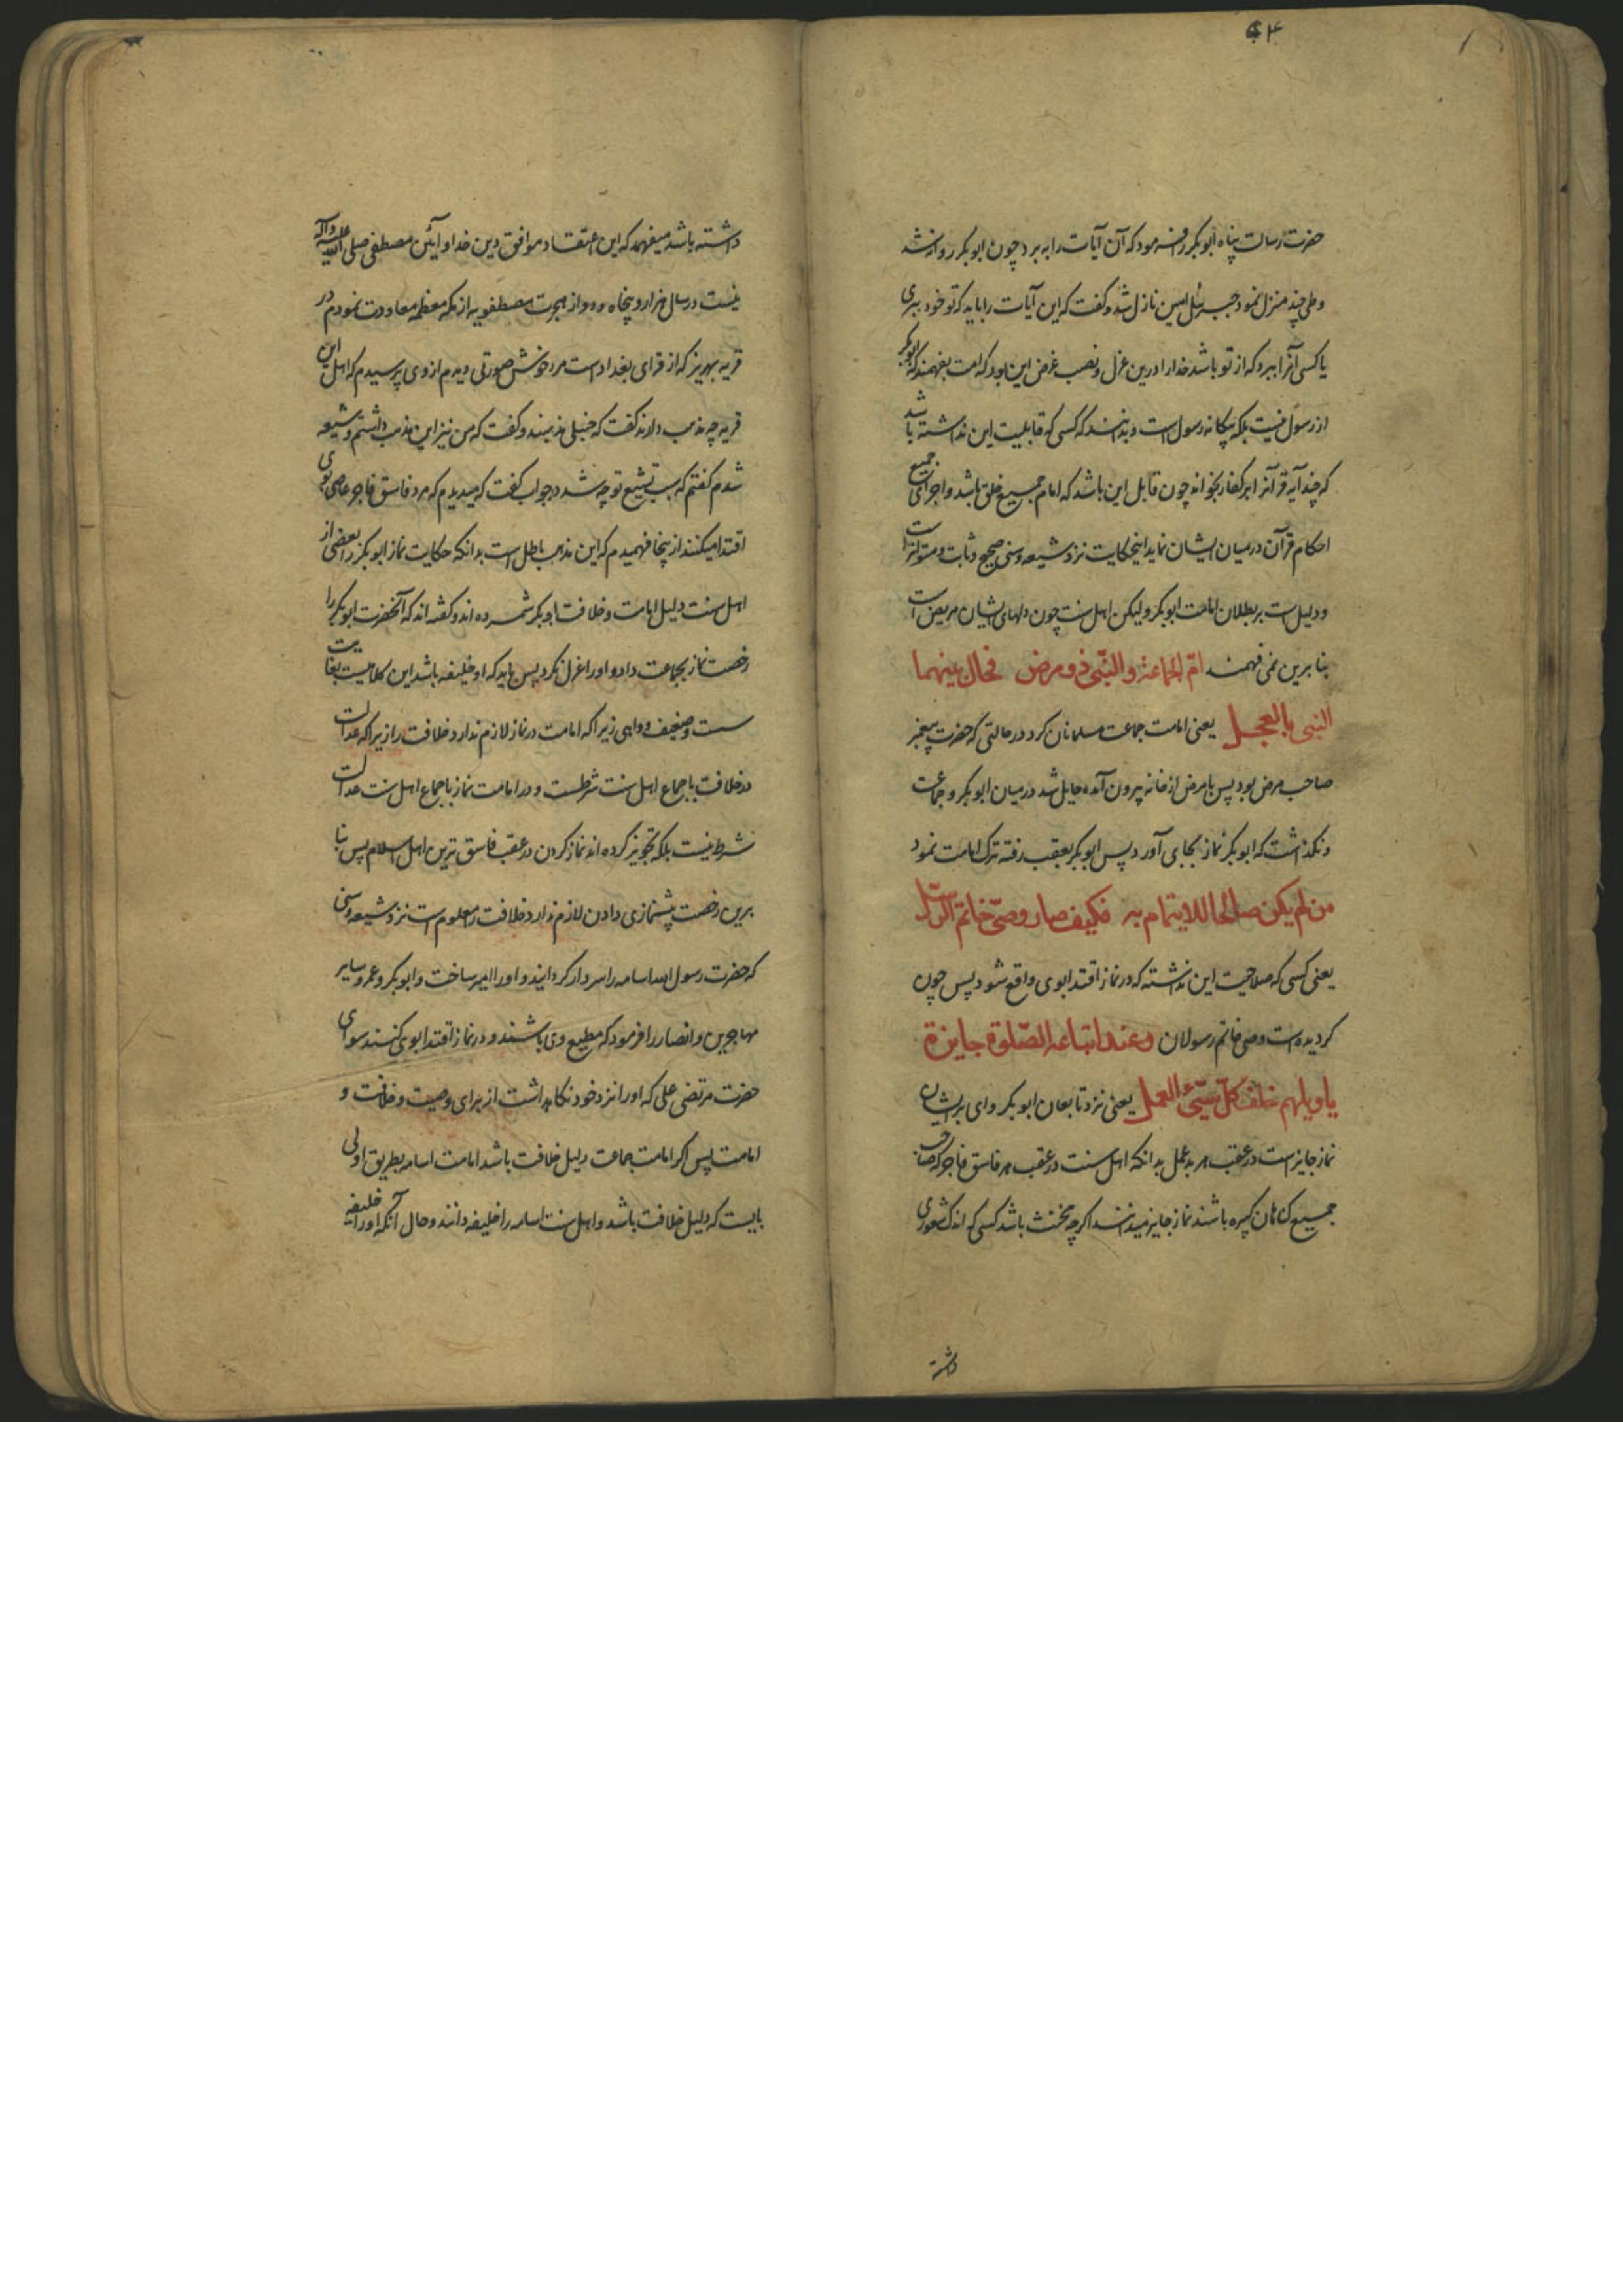 ۶۴
حضرت رسالت پناه ابوبکر را فرمود که آن آیات را به برد چون ابوبکر روانه شد
و طی چند منزل نمود جبرئیل امین نازل شد و گفت که این آیات را باید که تو خود ببری
یا کسی آنرا ببرد که از تو باشد خدا را درین عزل و نصب غرض این بود که امت بفهمند که ابوبکر
از رسول نیست بلکه بیگانه رسول است و بدانند که کسی که قابلیت این نداشته باشد
که چند آیه قرآنرا بر کفار بخواند چون قابل این باشد که امام جمیع خلق باشد و اجرای جمیع
احکام قرآن در میان ایشان نماید اینحکایت نزد شیعه و سنی صحیح و ثابت و متواتر است
و دلیل است بر بطلان امامت ابوبکر ولیکن اهل سنت چون دلهای ایشان مریض است
بنا برین نمی فهمند امّ الجماعة والنّبی ذو مرض فحال بینهما
النبی بالعجل یعنی امامت جماعت مسلمانان کرد در حالتی که حضرت پیغمبر
صاحب مرض بود پس با مرض از خانه بیرون آمده حایل شد در میان ابوبکر و جماعت
و نگذاشت که ابوبکر نماز بجای آورد پس ابوبکر بعقب رفته ترک امامت نمود
من لم یکن صالحا للایتمام به فکیف صار وصیّ خاتم الرّسل
یعنی کسی که صلاحیت این نداشته که در نماز اقتدا بوی واقع شود پس چون
گردیده است وصی خاتم رسولان وعند اتباعه الصّلوة جایزة
یا ویلهم خلف کلّ سیّئ العمل یعنی نزد تابعان ابوبکر وای بر ایشان
نماز جایز است در عقب هر بد عمل بدانکه اهل سنت در عقب هر فاسق فاجر که صاحب
جمیع گناهان کبیره باشند نماز جایز میدانند اگر چه مخنث باشد کسی که اندک شعوری
داشته
داشته باشد میفهمد که این اعتقاد موافق دین خدا و آیین مصطفی صلی الله علیه وآله
نیست در سال هزار و پنجاه و دو از هجرت مصطفویه از مکه معظمه معاودت نمودم در
قریه بهریز که از قرای بغداد است مرد خوش صورتی دیدم از وی پرسیدم که اهل این
قریه چه مذهب دارند گفت که حنبلی مذهبند و گفت که من نیز این مذهب داشتم و شیعه
شدم گفتم که سبب تشیع تو چه شد در جواب گفت که میدیدم که مرد فاسق فاجر عاصی بوی
اقتدا میکنند از ینجا فهمیدم که این مذهب باطل است بدانکه حکایت نماز ابوبکر را بعضی از
اهل سنت دلیل امامت و خلافت ابوبکر شمرده اند و گفته اند که آنحضرت ابوبکر را
رخصت نماز بجماعت داد و او را عزل نکرد پس باید که او خلیفه باشد این کلامیست بغایت
سست و ضعیف و واهی زیرا که امامت در نماز لازم ندارد خلافت را زیرا که عدالت
در خلافت باجماع اهل سنت شرطست و در امامت نماز باجماع اهل سنت عدالت
شرط نیست بلکه تجویز کرده اند نماز کردن در عقب فاسق ترین اهل اسلام پس بنا
برین رخصت پیشنمازی دادن لازم ندارد خلافت را معلوم است نزد شیعه و سنی
که حضرت رسول الله اسامه را سردار گردانید و او را امیر ساخت و ابوبکر و عمر و سایر
مهاجرین و انصار را فرمود که مطیع وی باشند و در نماز اقتدا بوی کنند سوای
حضرت مرتضی علی که او را نزد خود نگاهداشت از برای وصیت و خلافت و
امامت پس اگر امامت جماعت دلیل خلافت باشد امامت اسامه بطریق اولی
بایست که دلیل خلافت باشد و اهل سنت اسامه را خلیفه دانند و حال آنکه او را خلیفه